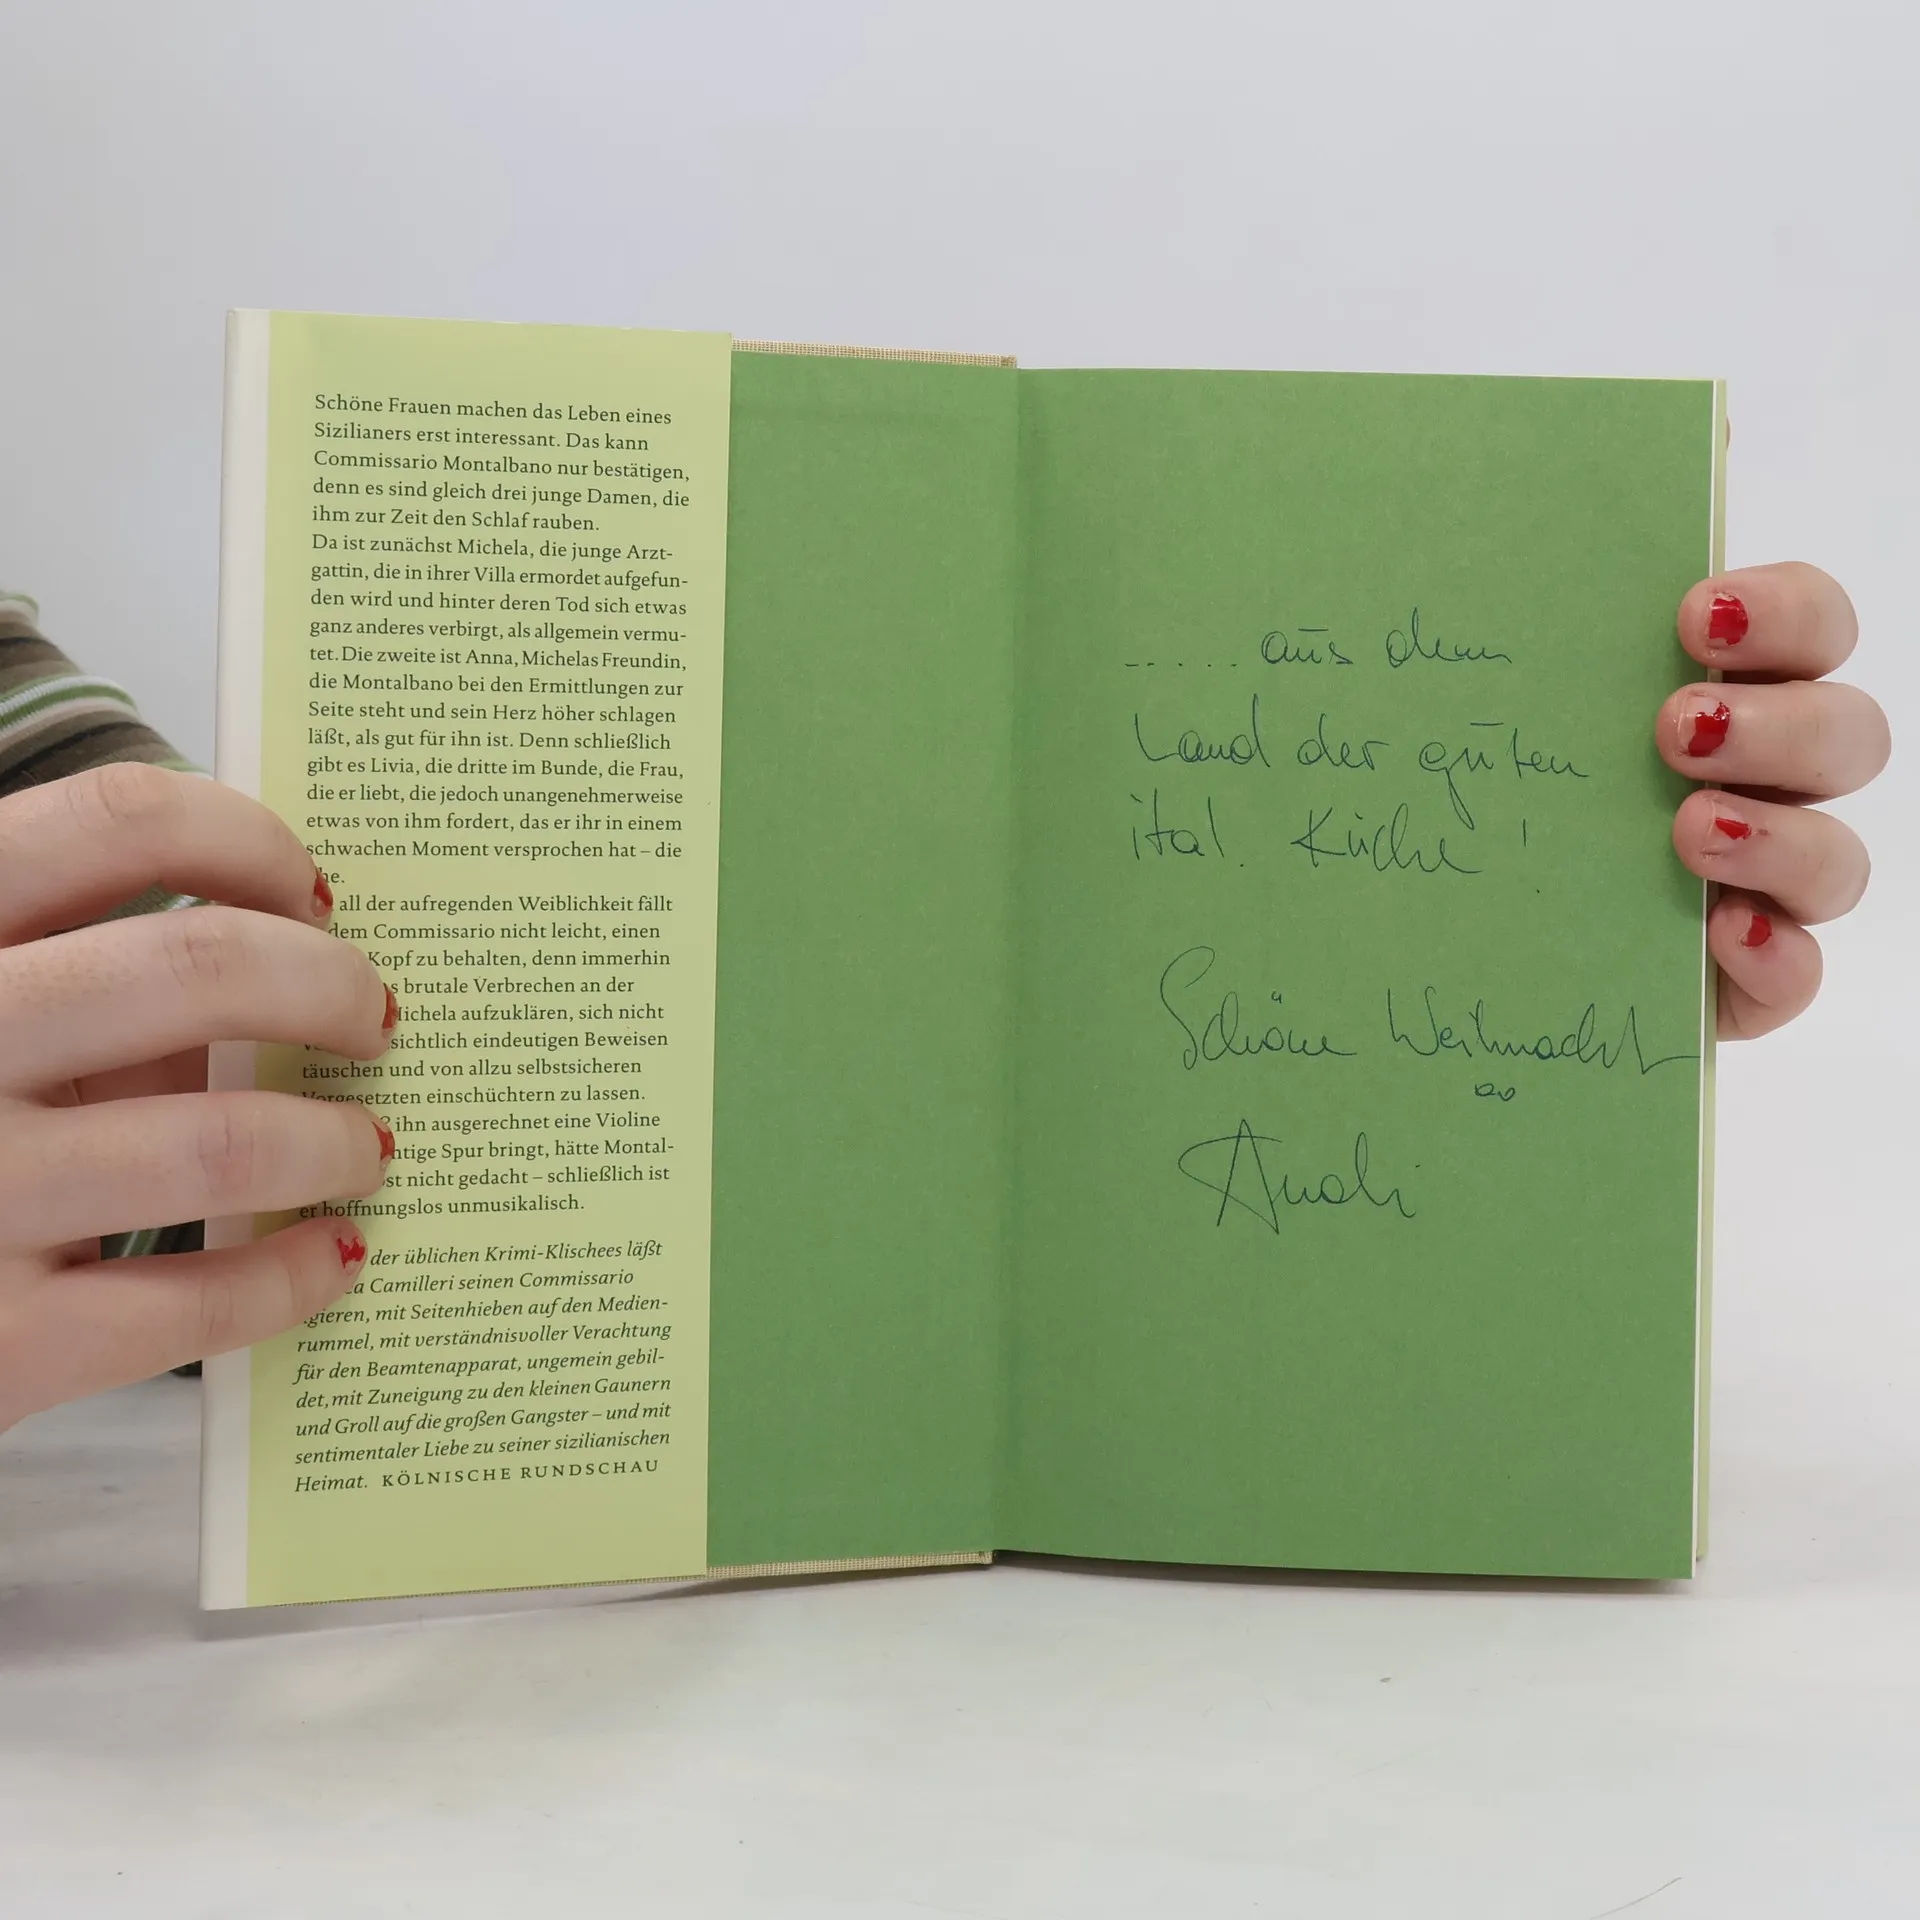 Schöne Frauen machen das Leben eines
Sizilianers erst interessant. Das kann
Commissario Montalbano nur bestätigen,
denn es sind gleich drei junge Damen, die
ihm zur Zeit den Schlaf rauben.
Da ist zunächst Michela, die junge Arzt-
gattin, die in ihrer Villa ermordet aufgefun-
den wird und hinter deren Tod sich etwas
ganz anderes verbirgt, als allgemein vermu-
tet. Die zweite ist Anna, Michelas Freundin,
die Montalbano bei den Ermittlungen zur
Seite steht und sein Herz höher schlagen
läßt, als gut für ihn ist. Denn schließlich
gibt es Livia, die dritte im Bunde, die Frau,
die er liebt, die jedoch unangenehmerweise
etwas von ihm fordert, das er ihr in einem
schwachen Moment versprochen hat – die
all der aufregenden Weiblichkeit fällt
dem Commissario nicht leicht, einen
Kopf zu behalten, denn immerhin
brutale Verbrechen an der
Michela aufzuklären, sich nicht
eindeutigen Beweisen
täuschen und von allzu selbstsicheren
Vorgesetzten einschüchtern zu lassen.
ihn ausgerechnet eine Violine
Spur bringt, hätte Montal-
nicht gedacht – schließlich ist
er hoffnungslos unmusikalisch.
der üblichen Krimi-Klischees läßt
Camilleri seinen Commissario
mit Seitenhieben auf den Medien-
rummel, mit verständnisvoller Verachtung
für den Beamtenapparat, ungemein gebil-
det, mit Zuneigung zu den kleinen Gaunern
und Groll auf die großen Gangster – und mit
sentimentaler Liebe zu seiner sizilianischen
Heimat. KÖLNISCHE RUNDSCHAU
..... aus dem
Land der guten
ital. Küche !
Schöne Weihnacht
Andi